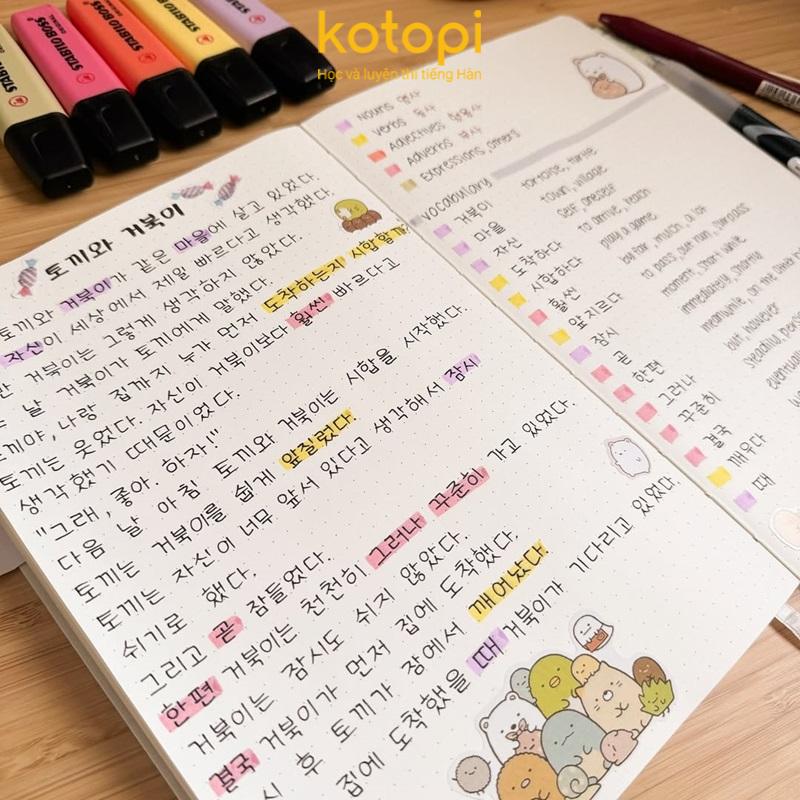 STABILO BOSS
ORIGINAL
STABILO BOSS
ORIGINAL
STABILO BOSS
STABILO BOSS
kotopi
Học và luyện thi tiếng Hàn
토끼와 거북이
토끼와 거북이가 같은 마을에 살고 있었다.
자신이 세상에서 제일 빠르다고 생각했다.
거북이는 그렇게 생각하지 않았다.
날 거북이가 토끼에게 말했다.
나랑 집까지 누가 먼저 도착하는지 시합할까
토끼는 웃었다. 자신이 거북이보다 훨씬 빠르다고
생각했기 때문이었다.
"그래, 좋아. 하자!"
다음 날 아침 토끼와 거북이는 시합을 시작했다.
토끼는 거북이를 쉽게 앞질렀다.
토끼는 자신이 너무 앞서 있다고 생각해서 잠시
쉬기로 했다.
그리고 곧 잠들었다.
한편 거북이는 천천히 그러나 꾸준히 가고 있었다.
거북이는 잠시도 쉬지 않았다.
결국 거북이가 먼저 집에 도착했다.
시 후 토끼가 잠에서 깨어났다.
집에 도착했을 때 거북이가 기다리고 있었다.
nouns 명사
verbs 동사
Adjectives 형용사
Adverbs 부사
Expressions, others
vocabulary
거북이 tortoise, turtle
마을 town, village
자신 self, oneself
도착하다 to arrive, reach
시합하다 play a game
훨씬 by far, much, a lot
앞지르다 to pass, out run, surpass
잠시 moment, short while
곧 immediately, shortly
한편 meanwhile, on the other
그러나 but, however
꾸준히 steadily,
결국
깨우다
때